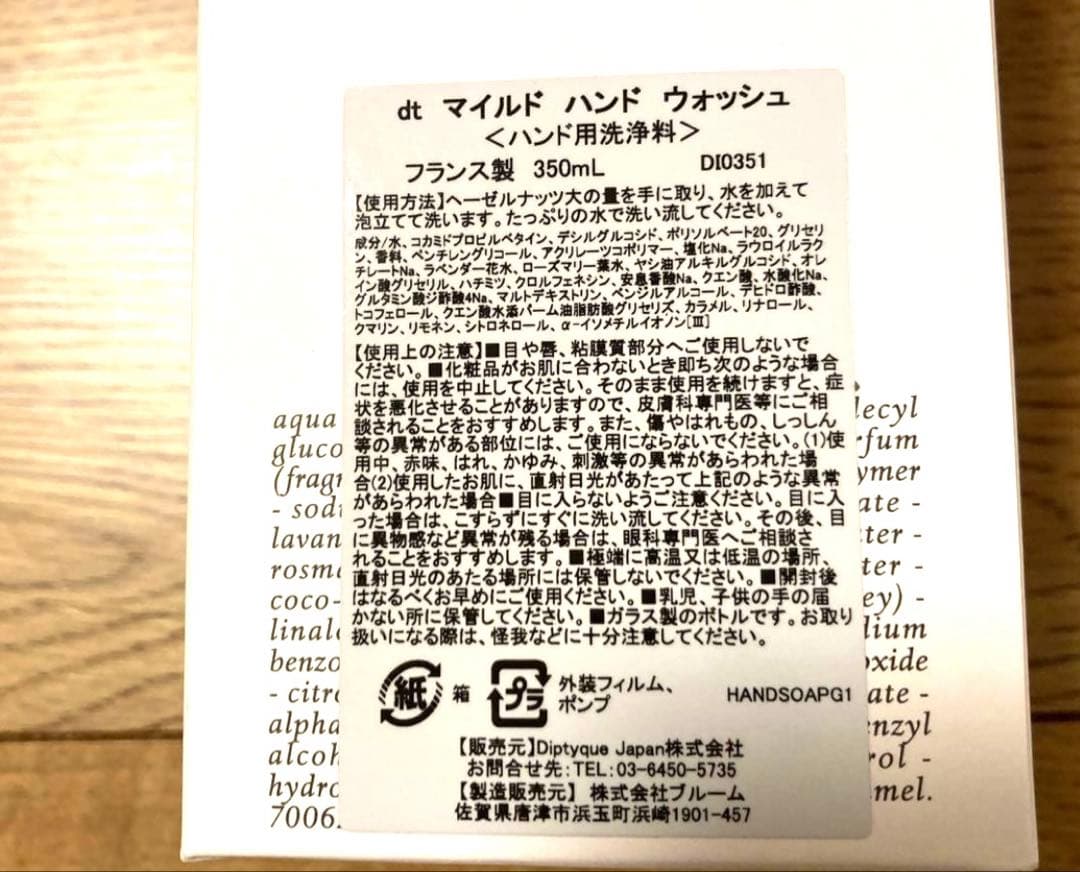 dt マイルド ハンド ウォッシュ
＜ハンド用洗浄料＞
フランス製 350mL DI0351
【使用方法】ヘーゼルナッツ大の量を手に取り、水を加えて
泡立てて洗います。たっぷりの水で洗い流してください。
成分/水、コカミドプロピルベタイン、デシルグルコシド、ポリソルベート20、グリセリ
ン、香料、ペンチレングリコール、アクリレーツコポリマー、塩化Na、ラウロイルラク
チレートNa、ラベンダー花水、ローズマリー葉水、ヤシ油アルキルグルコシド、オレ
イン酸グリセリル、ハチミツ、クロルフェネシン、安息香酸Na、クエン酸、水酸化Na、
グルタミン酸ジ酢酸4Na、マルトデキストリン、ベンジルアルコール、デヒドロ酢酸、
トコフェロール、クエン酸水添パーム油脂肪酸グリセリズ、カラメル、リナロール、
クマリン、リモネン、シトロネロール、α-イソメチルイオノン[Ⅲ]
【使用上の注意】■目や唇、粘膜質部分へご使用しないで
ください。■化粧品がお肌に合わないとき即ち次のような場合
には、使用を中止してください。そのまま使用を続けますと、症
状を悪化させることがありますので、皮膚科専門医等にご相
談されることをおすすめします。また、傷やはれもの、しっしん
等の異常がある部位には、ご使用にならないでください。(1)使
用中、赤味、はれ、かゆみ、刺激等の異常があらわれた場
合(2)使用したお肌に、直射日光があたって上記のような異常
があらわれた場合■目に入らないようご注意ください。目に入
った場合は、こすらずにすぐに洗い流してください。その後、目
に異物感など異常が残る場合は、眼科専門医へご相談さ
れることをおすすめします。■極端に高温又は低温の場所、
直射日光のあたる場所には保管しないでください。■開封後
はなるべくお早めにご使用ください。■乳児、子供の手の届
かない所に保管してください。■ガラス製のボトルです。お取り
扱いになる際は、怪我などに十分注意してください。
紙 箱 プラ 外装フィルム、
ポンプ HANDSOAPG1
【販売元】Diptyque Japan株式会社
お問合せ先:TEL:03-6450-5735
【製造販売元】 株式会社ブルーム
佐賀県唐津市浜玉町浜崎1901-457
aqua lecyl
gluco rfum
(fragr ymer
- sodi ate -
lavan ter -
rosma ter -
coco- ey) -
linalo dium
benzo oxide
- citro ate -
alpha enzyl
alcoh rol -
hydro mel.
7006